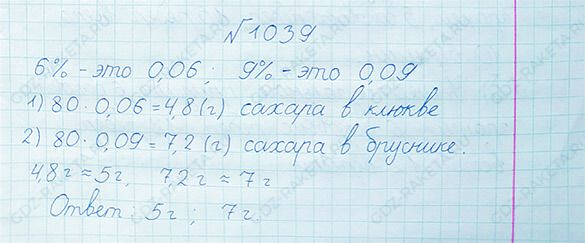 №1039
6% - это 0,06; 9% - это 0,09
1) 80 · 0,06 = 4,8 (г) сахара в клюкве
2) 80 · 0,09 = 7,2 (г) сахара в бруснике.
4,8 г ≈ 5 г, 7,2 г ≈ 7 г
Ответ: 5 г; 7 г.
GDZ-RAKETA.RU